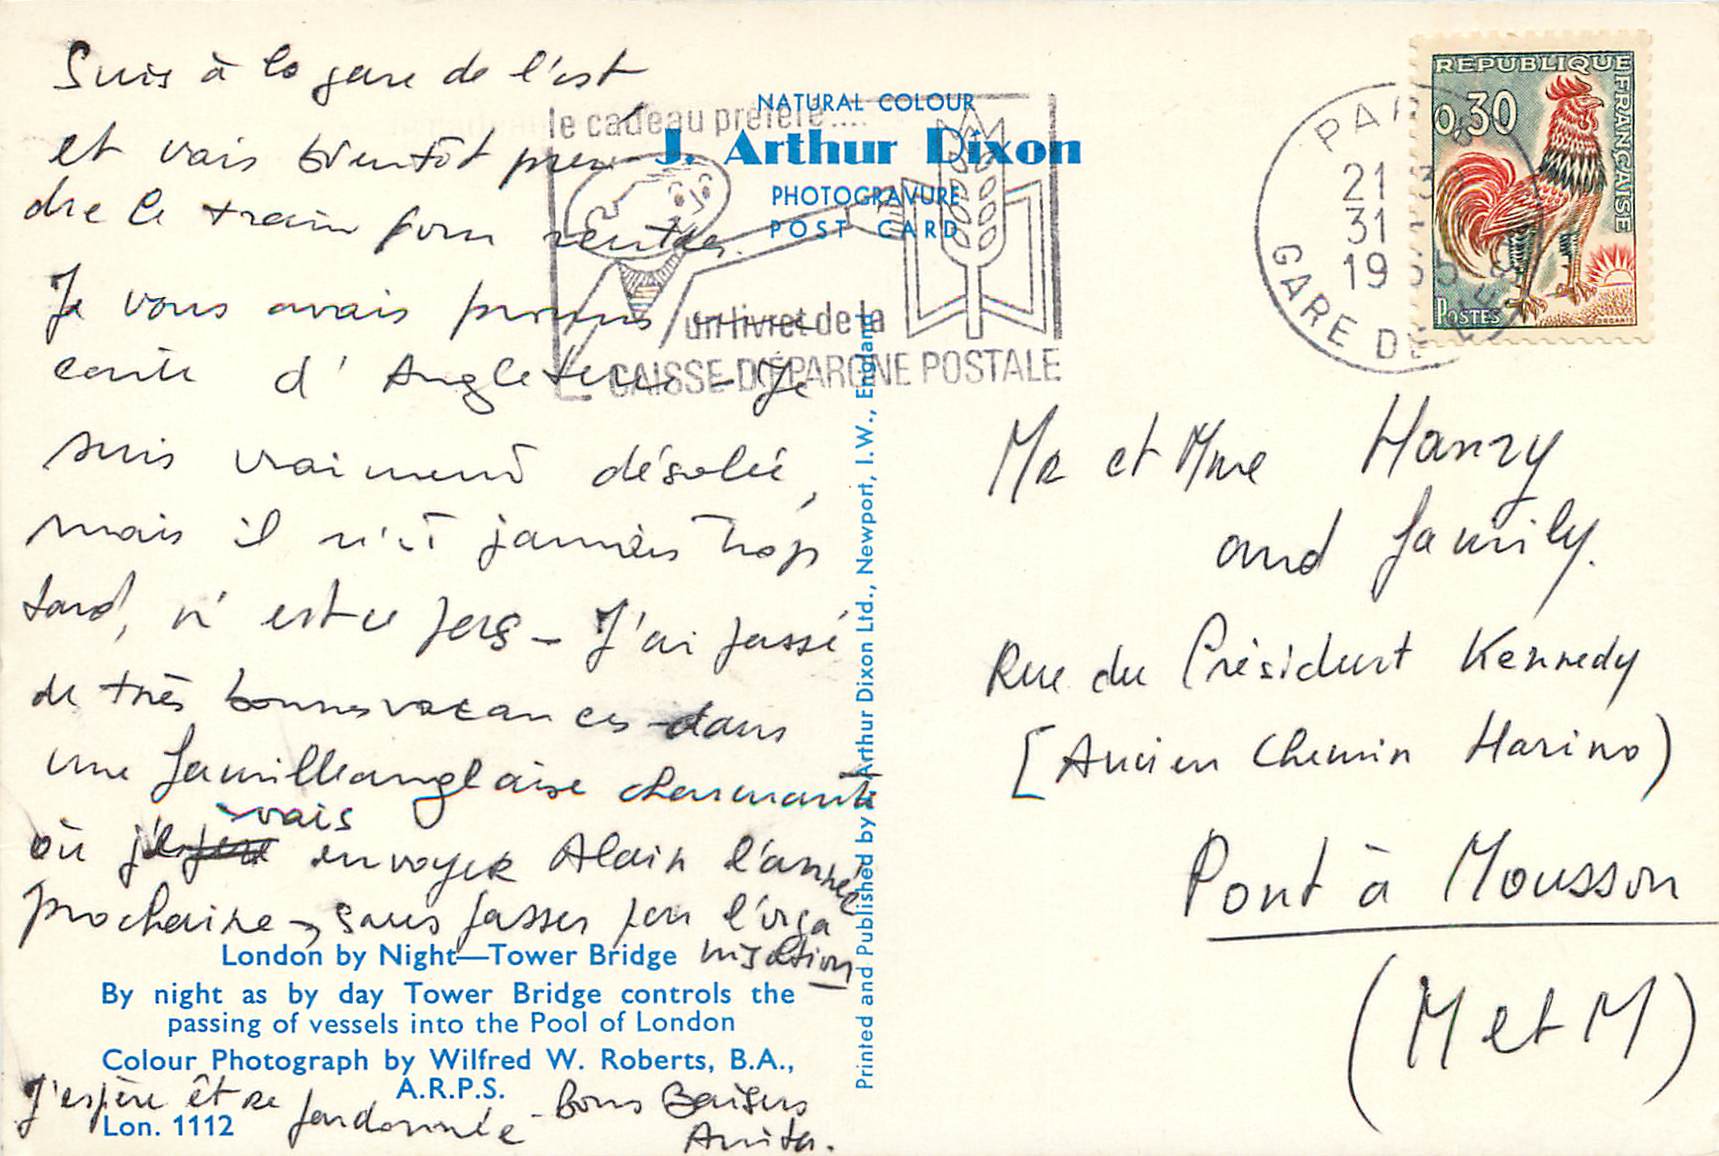 Suis à la gare de l'est
et vais bientôt pren-
dre le train pour rentrer.
Je vous avais promis une
carte d'Angleterre - Je
suis vraiment désolée,
mais il n'est jamais trop
tard, n'est ce pas - J'ai passé
de très bonnes vacances dans
une famille anglaise charmante
où je vais envoyer Alain l'année
prochaine, sans passer par l'orga
nisation
J'espère être pardonnée - Bons Baisers
Anita.
London by Night—Tower Bridge
By night as by day Tower Bridge controls the
passing of vessels into the Pool of London
Colour Photograph by Wilfred W. Roberts, B.A.,
A.R.P.S.
Lon. 1112
NATURAL COLOUR
J. Arthur Dixon
PHOTOGRAVURE
POST CARD
Printed and Published by J. Arthur Dixon Ltd., Newport, I.W., England
le cadeau préféré....
un livret de la
CAISSE D'ÉPARGNE POSTALE
PARIS
21
31
19
GARE DE
REPUBLIQUE
FRANÇAISE
0,30
POSTES
DECARIS
Mr et Mme Hanzy
and family.
Rue du Président Kennedy
[Ancien Chemin Harino)
Pont à Mousson
(M et M)